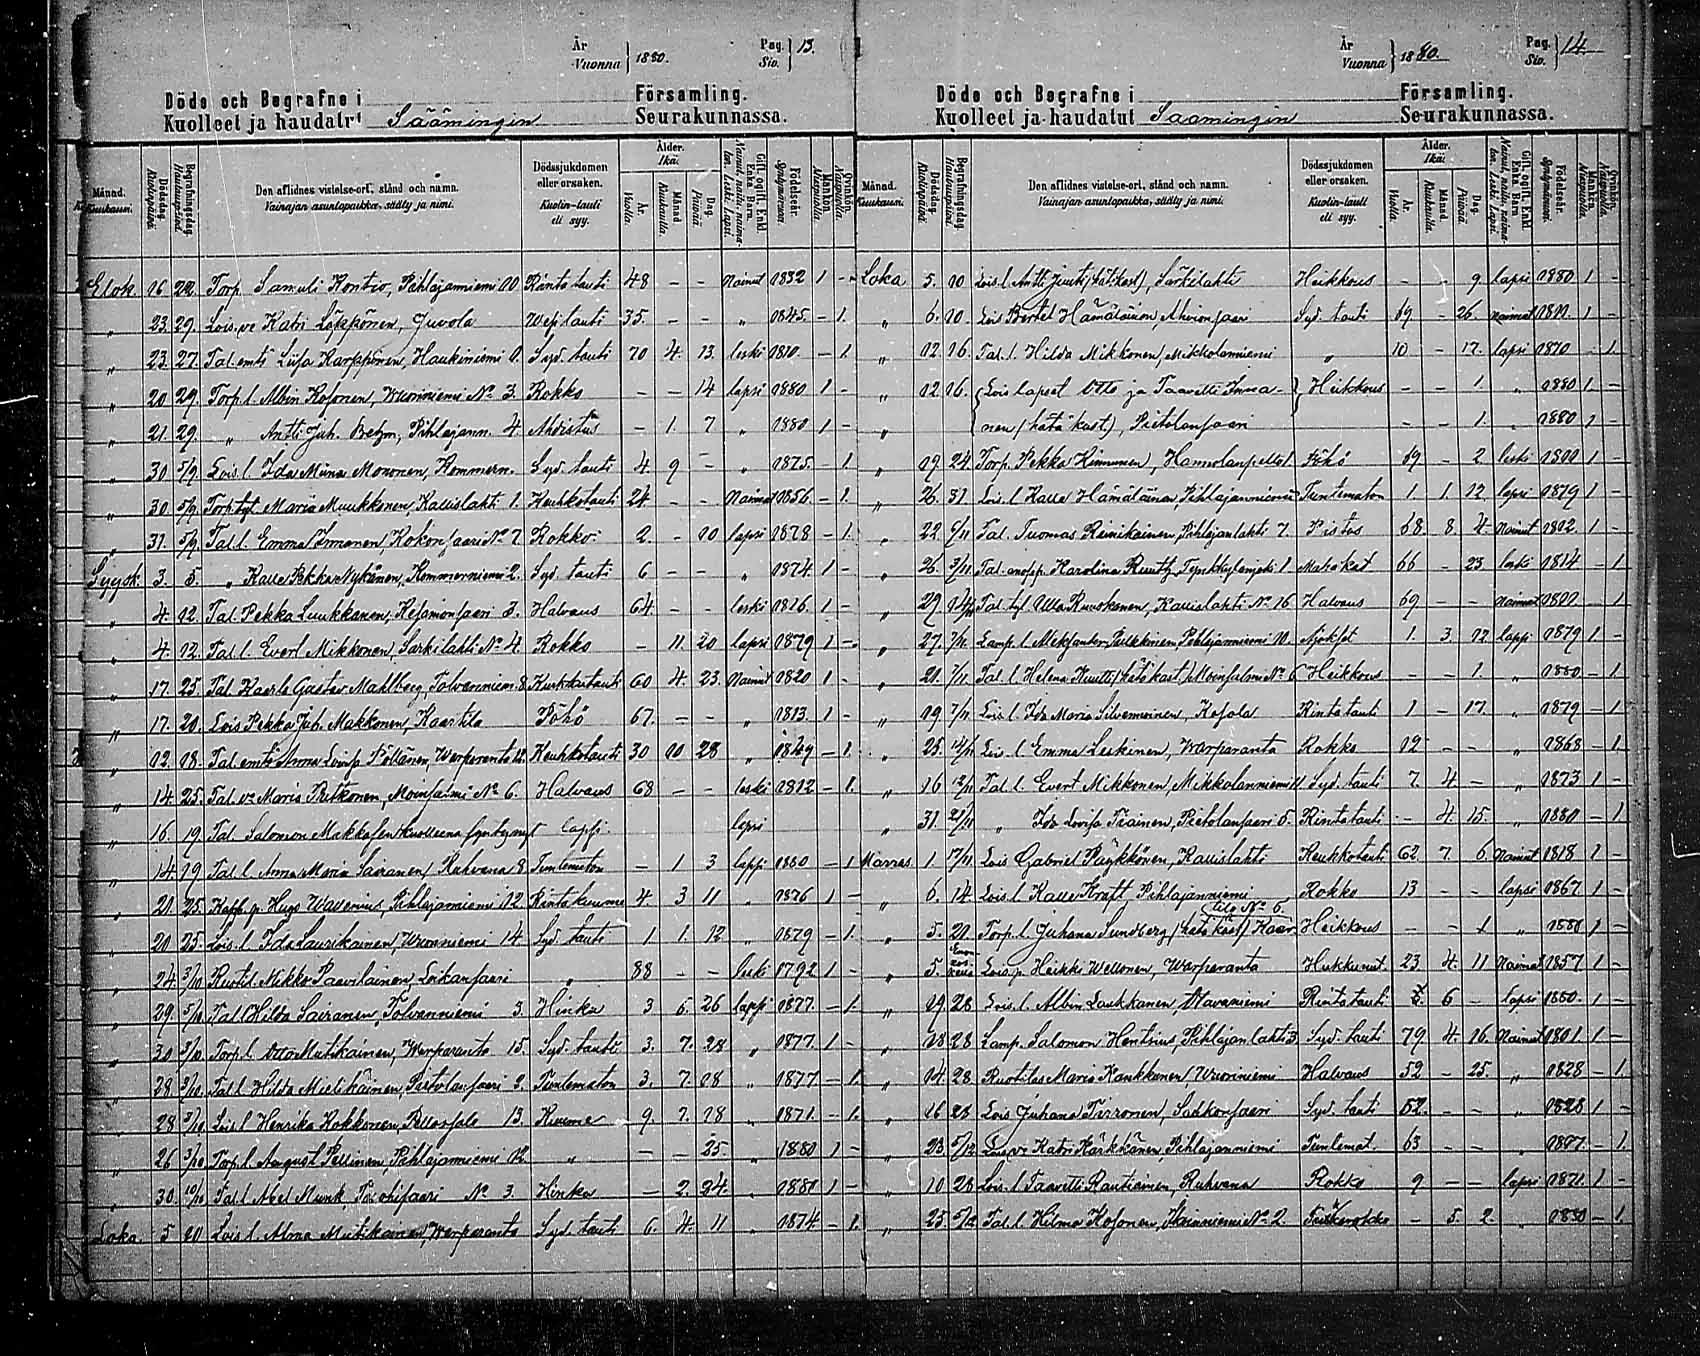 År Vuonna } 1880. Pag. Siv. } 13.
Döde och Begrafne i Församling.
Kuolleet ja haudatut Säämingin Seurakunnassa.
Månad. Kuukausi. Dödsdag. Kuolinpäivä. Begrafningsdag. Hautauspäivä. Den aflidnes vistelse-ort, stånd och namn. Vainajan asuntopaikka, sääty ja nimi. Dödssjukdomen eller orsaken. Kuolin-tauti eli syy. Ålder. Ikä. År. Vuotta. Månad. Kuukautta. Dag. Päivää. Gift, ogift, Enkl. Enka Barn Födelseår. Syntymävuosi. Mankön. Miespuolia. Qvinkön. Naispuolia.
Elok. 16 22. Torp. Samuli Kontio, Pihlajanniemi 10 Rintatauti 48 - - Nainut 1832 1 -
" 23. 29. Lois. vo Katri Löppönen, Juvola Wesitauti 35. - - " 1845. - 1.
" 23. 27. Tal. emtä Liisa Karppinen, Haukiniemi 1. Syd. tauti 70 4. 13. leski 1810. - 1
" 20 29. Torp. l. Albin Kosonen, Wuoriniemi No 3. Rokko - - 14 lapsi 1880 1 -
" 21. 29. " Antti Juh. Behm, Pihlajann. 4 Ahdistus - 1. 7 " 1880 1 -
" 30 5/9. Lois. l. Ida Miina Mononen, Kommern. Syd. tauti 4. 9 - " 1875. - 1
" 30. 5/9. Torp. tyt Maria Muukkonen, Kallislahti 1. Keuhkotauti 24. - - Nainut 1856. - 1.
" 31. 5/9. Tal. l. Emma Immonen, Kokonsaari No 7 Rokko 2. - 10 lapsi 1878 - 1.
Syysk. 3. 5. " Kalle Pekka Nykänen, Kommerniemi 2. Syd. tauti 6 - - " 1874. 1 -
" 4. 12. Tal. Pekka Luukkanen, Kesamonsaari 3. Halvaus 64. - - leski 1816. 1 -
" 4. 12. Tal. l. Evert Mikkonen, Särkilahti No 4. Rokko - 11. 20 lapsi 1879 1 -
" 17. 25. Tal. Kaarlo Gustav Mahlberg, Tolvanniemi 8. Keuhkotauti 60 4. 23. Nainut 1820 1 -
" 17. 20. Lois Pekka Juh. Makkonen, Kaartila Pöhö 67. - - " 1813. 1 -
" 12. 18. Tal. emtä Anna Lovisa Pöllänen, Warparanta 12. Keuhkotauti 30 10 28 " 1849 - 1.
" 14. 25. Tal. vo Maria Pitkonen, Moinsalmi No 6. Halvaus 68 - - leski 1812 - 1.
" 16. 19. Tal. Salomon Makkosen kuolleena syntynyt lapsi. lapsi
" 14. 19 Tal. l. Anna Maria Sairanen, Ruhvana 8. Tuntematon - 1 3 lapsi 1880 - 1
" 21. 25. Kapp. p. Hugo Wallenius, Pihlajaniemi 12. Rintakuume 4. 3 11 " 1876 1 -
" 20 25. Lois. l. Ida Laurikainen, Wuoriniemi 14. Syd. tauti 1. 1. 12 " 1879 - 1.
" 24. 3/10 Ruotil. Mikko Paavilainen, Loikansaari " 88 - - leski 1792 1 -
" 29. 5/10 Tal. l. Hilda Sairanen, Tolvanniemi 3. Hinka 3 6. 26 lapsi 1877. - 1.
" 30 3/10. Torp. l. Otto Mutikainen, Warparanta 15. Syd. tauti 3. 7. 28 " 1877. 1 -
" 28. 3/10. Tal. l. Hilda Mielikäinen, Pietolansaari 2. Tuntematon 3. 7. 18 " 1877 - 1.
" 28 3/10 Lois. l. Henrika Kokkonen, Pellossalo 13. Kuume 9. 7. 18 " 1871. - 1.
" 26 3/10 Torp. l. August Pellinen, Pihlajaniemi 12. " - - 25. " 1880 1 -
" 30. 10/10 Tal. l. Abel Munk, No 3. Hinka - 2. 24. " 1880 1 -
Loka. 5 10 Lois. l. Alma Mutikainen, Warparanta Syd. tauti 6. 4. 11 " 1874 - 1.
År Vuonna } 1880. Pag. Siv. } 14.
Döde och Begrafne i Församling.
Kuolleet ja haudatut Säämingin Seurakunnassa.
Månad. Kuukausi. Dödsdag. Kuolinpäivä. Begrafningsdag. Hautauspäivä. Den aflidnes vistelse-ort, stånd och namn. Vainajan asuntopaikka, sääty ja nimi. Dödssjukdomen eller orsaken. Kuolin-tauti eli syy. Ålder. Ikä. År. Vuotta. Månad. Kuukautta. Dag. Päivää. Gift, ogift, Enkl. Enka Barn Födelseår. Syntymävuosi. Mankön. Miespuolia. Qvinkön. Naispuolia.
Loka 5. 10 Lois. l. Antti (hät. kast), Särkilahti Heikkous - - 9 lapsi 1880 1 -
" 6. 10 Lois Bertel Hämäläinen, Ahvionsaari Syd. tauti 69 - 26. Nainut 1811. 1 -
" 12. 16. Tal. l. Hilda Mikkonen, Mikkolanniemi " 10 - 17. lapsi 1870 - 1.
" 12 16. { Lois lapset Otto ja Taavetti Imma- } Heikkous - - 1. " 1880 1 -
" nen (hätä kast), Pietolansaari - - 1. " 1880 1 -
" 19 24. Torp. Pekka Kinnunen, Hannolanpelto 1 Pöhö 69 - 2 leski 1811 1 -
" 26. 31. Lois. l. Kalle Hämäläinen, Pihlajanniemi Tuntematon 1. 1. 12. lapsi 1879 1 -
" 22. 6/11 Tal. Tuomas Reinikainen, Pihlajanlahti 7. Pistos 68 8 4. Nainut 1812 1 -
" 26. 3/11. Tal. anopp. Karolina Ruuth, 1. Mahakat 66 - 23 leski 1814 - 1
" 29 14/11 Tal. tyt Ulla Ruuskanen, Kallislahti No 16 Halvaus 69 - - Nainut 1811 - 1
" 27. 7/11. Lamp. l. Aleksanter Pulkkinen, Pihlajanniemi 10. 1. 3 12 lapsi 1879 1 -
" 21. 7/11 Tal. l. Helena Kuutti (hätä kast), Moinsalmi No 6 Heikkous - - 1. " 1880 - 1
" 19 7/11 Lois. l. Ida Maria Silvennoinen, Kosola Rintatauti 1 - 17. " 1879 - 1
" 25. 14/11. Lois. l. Emma Leskinen, Warparanta Rokko 12 - - " 1868 - 1
" 16 12/11 Tal. l. Evert Mikkonen, Mikkolanniemi 11. Syd. tauti 7. 4 - " 1873 1 -
" 31. 21/11 " Ida Lovisa Tiainen, Pietolansaari 5. Rintatauti - 4. 15. " 1880 - 1
Marras. 1 17/11. Lois Gabriel Päykkönen, Kallislahti Keuhkotauti 62. 7. 6. Nainut 1818 1 -
" 6. 14. Lois. l. Kalle Kraft, Pihlajanniemi Rokko 13 - - lapsi 1867 1 -
" 5. 21. Torp. l. Juhana Sundberg (hätä kast) Kaar- tila No 6 Heikkous - - 1 " 1880 1 -
" 5. Lois. p. Heikki Wellonen, Warparanta Hukkunut 23. 4. 11 Nainut 1857 1 -
" 19. 28 Lois. l. Albin Laukkanen, Otavaniemi Rintatauti 6 - lapsi 1880. 1 -
" 18 28 Lamp. Salomon Hentrius, Pihlajanlahti 3 Syd. tauti 79 4. 16. Nainut 1801. 1 -
" 14. 28. Ruotilas Maria Kankkunen, Wuoriniemi Halvaus 52 - 25. " 1828 - 1.
" 16 28 Lois Juhana Tirronen, Sahkonsaari Syd. tauti 52. - - " 1828 1 -
" 23 5/12 Lois. vo Katri Kärkkänen, Pihlajanniemi Tuntemat. 63 - - " 1817 - 1
" 10 28 Lois. l. Taavetti Rautiainen, Ruhvana Rokko 9 - - lapsi 1871. 1 -
" 25. 5/12 Tal. l. Hilma Kosonen, No 2. - 5. 2. " 1880 - 1.